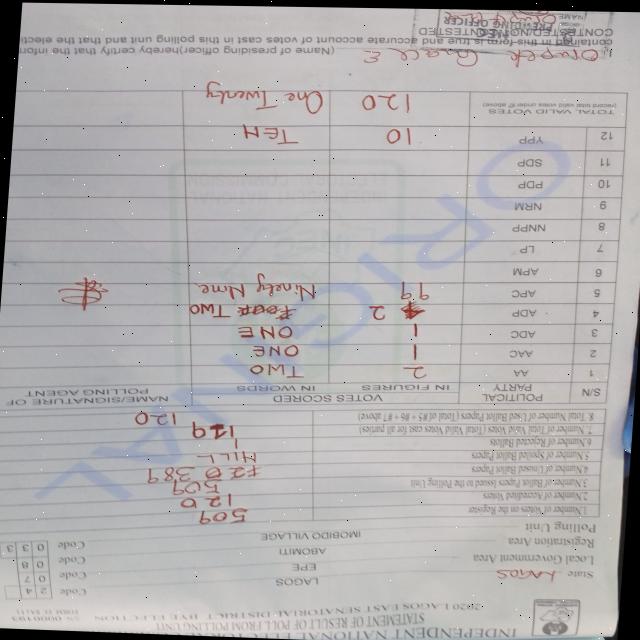 INDEPENDENT NATIONAL ELECTORAL
STATEMENT OF RESULT OF POLL FROM POLLING UNIT
2020 LAGOS EAST SENATORIAL DISTRICT BYE ELECTION
S/N 0000193
State LAGOS LAGOS Code 2 4
Local Government Area EPE Code 0 7
Registration Area ABOMITI Code 0 8
Polling Unit IMOBIDO VILLAGE Code 0 3 3
1. Number of Voters on the Register 509
2. Number of Accredited Voters 120
3. Number of Ballot Papers Issued to the Polling Unit 509
4. Number of Unused Ballot Papers 389
5. Number of Spoiled Ballot Papers NILL
6. Number of Rejected Ballots 1
7. Number of Total Valid Votes (Total Valid Votes cast for all parties) 119
8. Total Number of Used Ballot Papers (Total of #5 + #6 + #7 above) 120
S/N POLITICAL PARTY VOTES SCORED IN FIGURES IN WORDS NAME/SIGNATURE OF POLLING AGENT
1 AA 2 TWO
2 AAC 1 ONE
3 ADC 1 ONE
4 ADP 2 TWO
5 APC 99 Ninety Nine
6 APM
7 LP
8 NNPP
9 NRM
10 PDP
11 SDP
12 YPP 10 TEN
TOTAL VALID VOTES 120 One Twenty
(record total valid votes under #7 above)
Grace E (Name of presiding officer)hereby certify that the information
contained in this form is true and accurate account of votes cast in this polling unit and that the election
CONTESTED
PRESIDING OFFICER
NAME
ORIGINAL